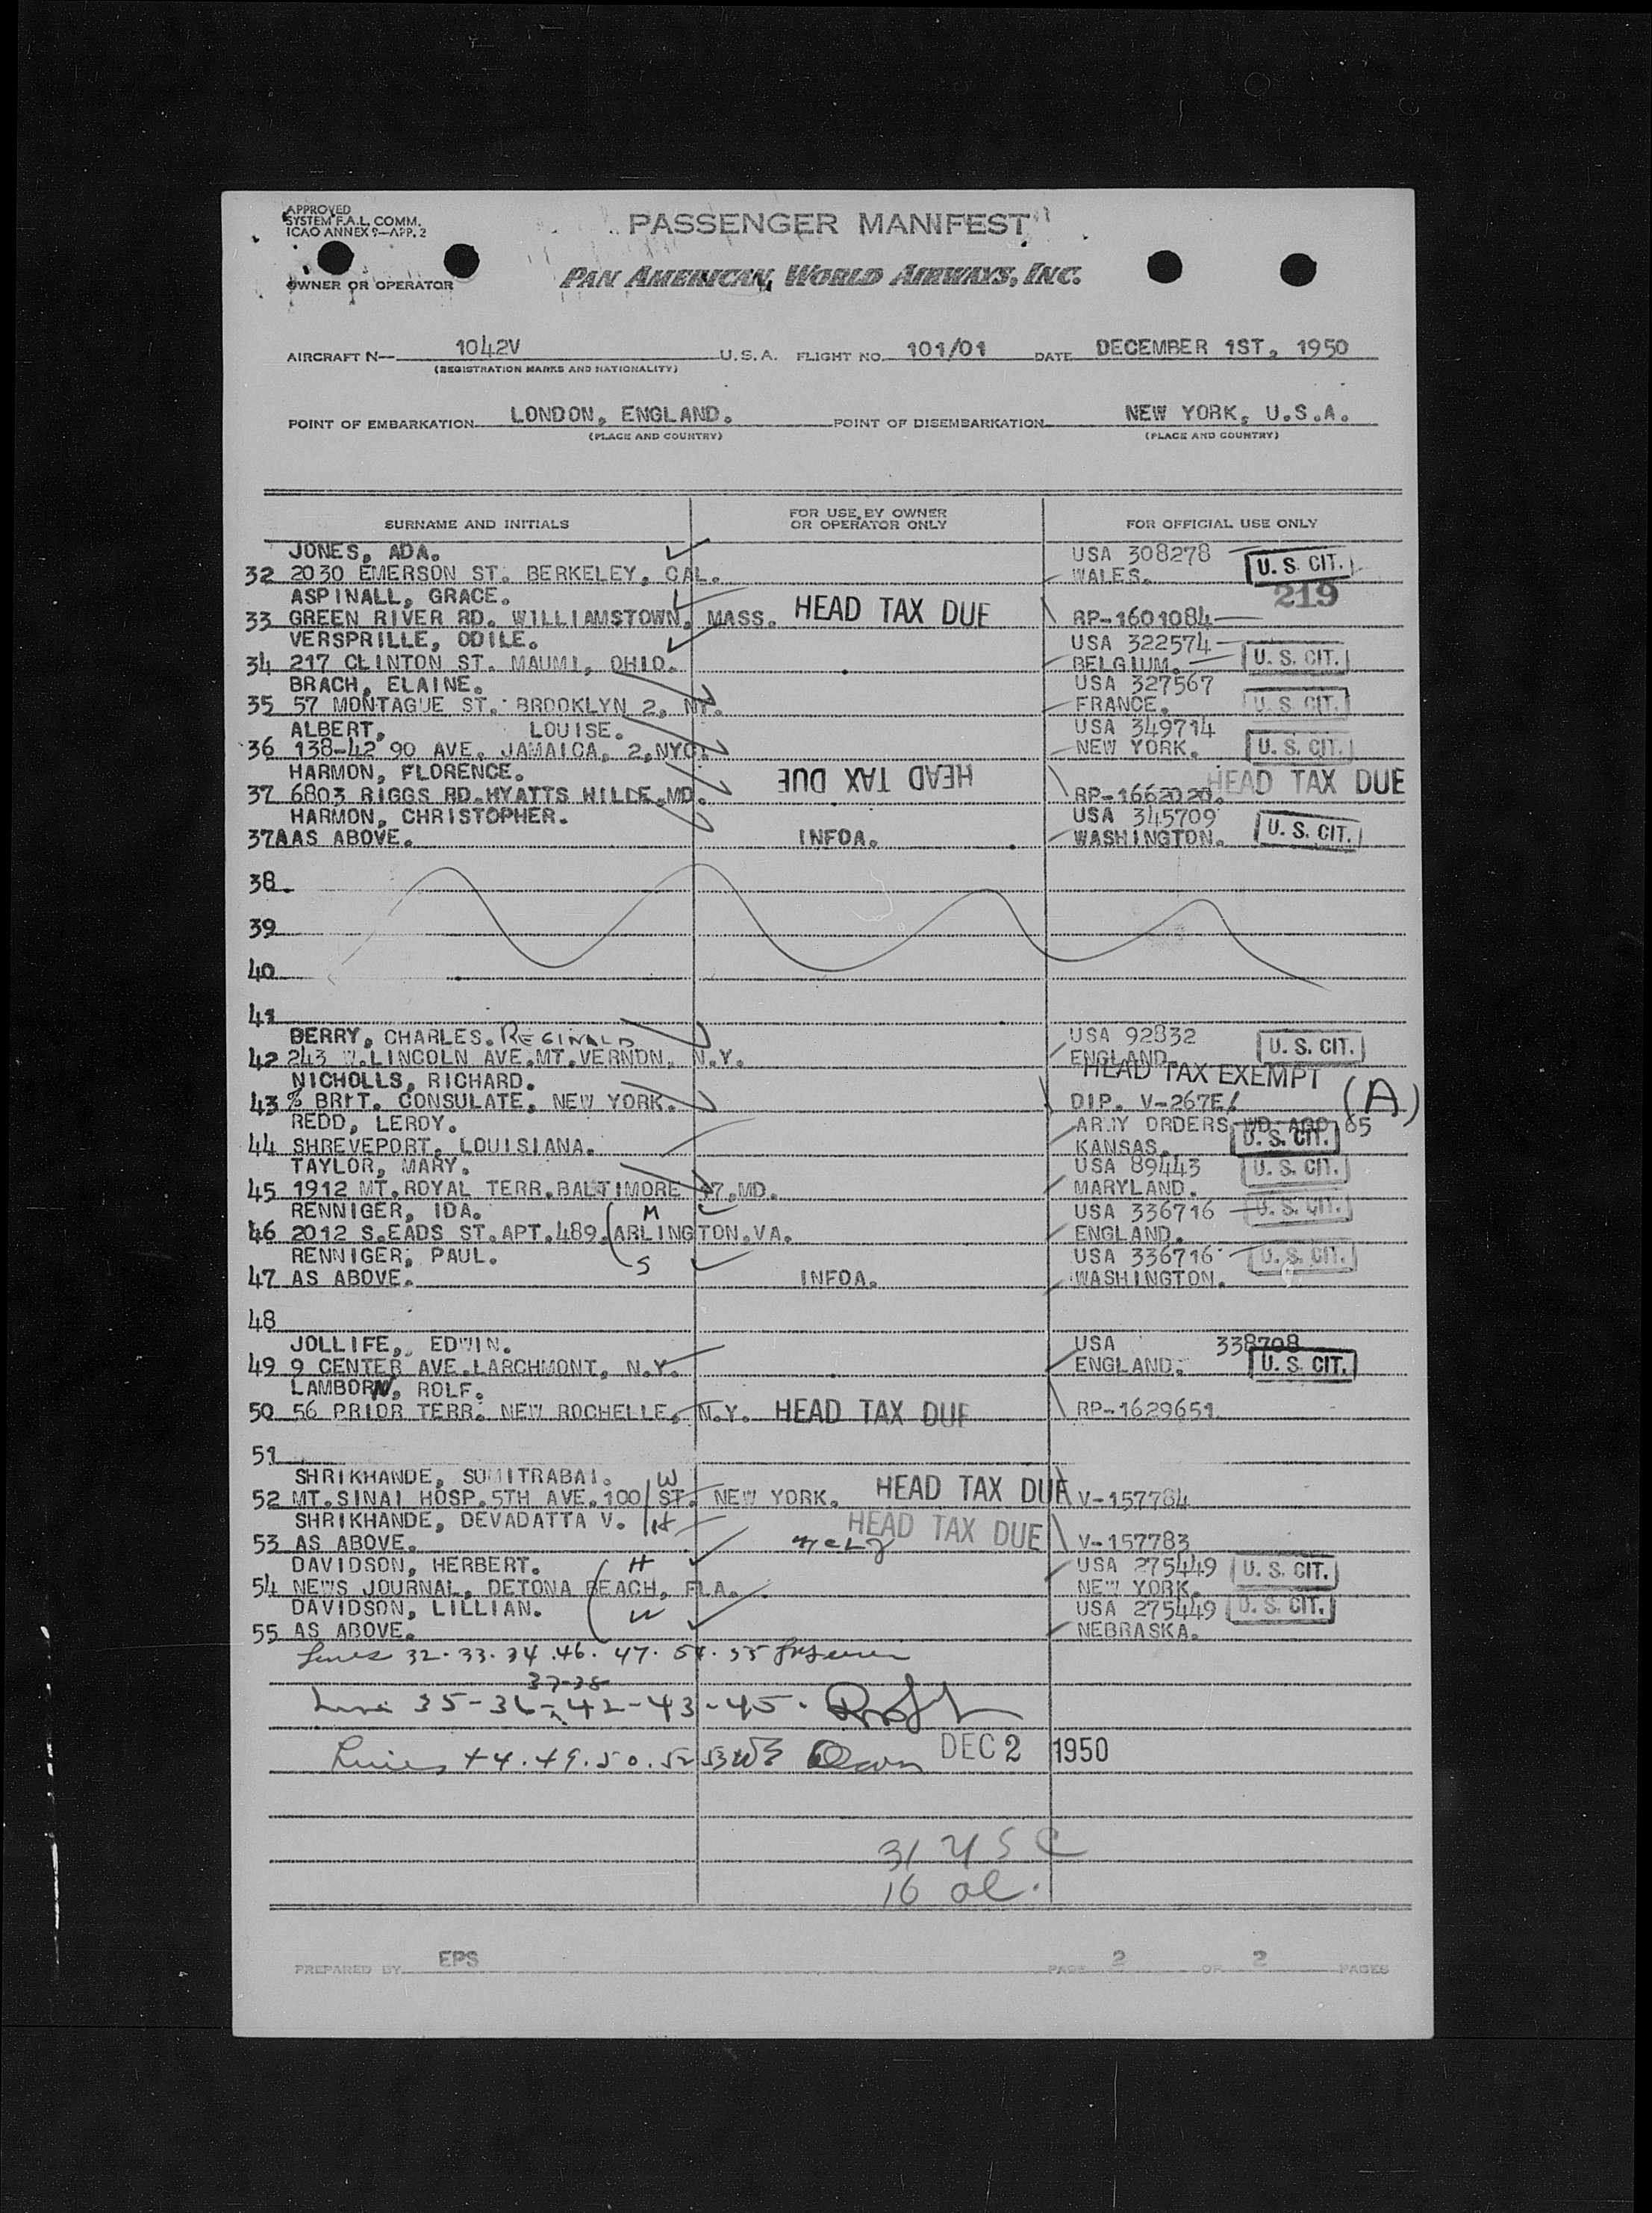 APPROVED
SYSTEM F.A.L. COMM.
ICAO ANNEX 9—APP. 2
PASSENGER MANIFEST
OWNER OR OPERATOR
PAN AMERICAN WORLD AIRWAYS, INC.
AIRCRAFT N— 1042V U.S.A. FLIGHT NO. 101/01 DATE DECEMBER 1ST, 1950
(REGISTRATION MARKS AND NATIONALITY)
POINT OF EMBARKATION LONDON, ENGLAND. POINT OF DISEMBARKATION NEW YORK, U.S.A.
(PLACE AND COUNTRY) (PLACE AND COUNTRY)
SURNAME AND INITIALS FOR USE BY OWNER OR OPERATOR ONLY FOR OFFICIAL USE ONLY
JONES, ADA. USA 308278
32 2030 EMERSON ST. BERKELEY, CAL. WALES. U.S. CIT.
ASPINALL, GRACE. 219
33 GREEN RIVER RD. WILLIAMSTOWN, MASS. HEAD TAX DUE RP-1601084
VERSPRILLE, ODILE. USA 322574
34 217 CLINTON ST. MAUMI, OHIO. BELGIUM. U.S. CIT.
BRACH, ELAINE. USA 327567
35 57 MONTAGUE ST. BROOKLYN 2, NY. FRANCE. U.S. CIT.
ALBERT, LOUISE. USA 349714
36 138-42 90 AVE. JAMAICA, 2,NYC. NEW YORK. U.S. CIT.
HARMON, FLORENCE. HEAD TAX DUE HEAD TAX DUE
37 6803 RIGGS RD.HYATTS HILLE.MD. RP-1662020.
HARMON, CHRISTOPHER. USA 345709
37AAS ABOVE. INFOA. WASHINGTON. U.S. CIT.
38
39
40
41
BERRY, CHARLES. REGINALD USA 92832
42 243 W.LINCOLN AVE.MT.VERNON, N.Y. ENGLAND U.S. CIT.
NICHOLLS, RICHARD. HEAD TAX EXEMPT
43 % BRIT. CONSULATE, NEW YORK. DIP. V-267E/ (A)
REDD, LEROY. ARMY ORDERS WD AGO 65
44 SHREVEPORT, LOUISIANA. KANSAS. U.S. CIT.
TAYLOR, MARY. USA 89443 U.S. CIT.
45 1912 MT.ROYAL TERR.BALTIMORE 17,MD. MARYLAND.
RENNIGER, IDA. M USA 336716 U.S. CIT.
46 2012 S.EADS ST.APT.489,ARLINGTON.VA. ENGLAND.
RENNIGER, PAUL. S USA 336716 U.S. CIT.
47 AS ABOVE. INFOA. WASHINGTON.
48
JOLLIFE, EDWIN. USA 338708
49 9 CENTER AVE.LARCHMONT, N.Y. ENGLAND. U.S. CIT.
LAMBORN, ROLF.
50 56 PRIOR TERR. NEW ROCHELLE, N.Y. HEAD TAX DUE RP-1629651.
51
SHRIKHANDE, SUMITRABAI. W
52 MT.SINAI HOSP.5TH AVE.100 ST. NEW YORK. HEAD TAX DUE V-157784
SHRIKHANDE, DEVADATTA V. H HEAD TAX DUE
53 AS ABOVE. V-157783
DAVIDSON, HERBERT. H USA 275449 U.S. CIT.
54 NEWS JOURNAL, DETONA BEACH, FLA. NEW YORK.
DAVIDSON, LILLIAN. W USA 275449 U.S. CIT.
55 AS ABOVE. NEBRASKA.
Lines 32.33.34.46.47.54.55
37-38
Line 35-36-42-43-45.
Lines 44.49.50.52 53 DEC 2 1950
31 USC
16 al.
PREPARED BY EPS PAGE 2 OF 2 PAGES